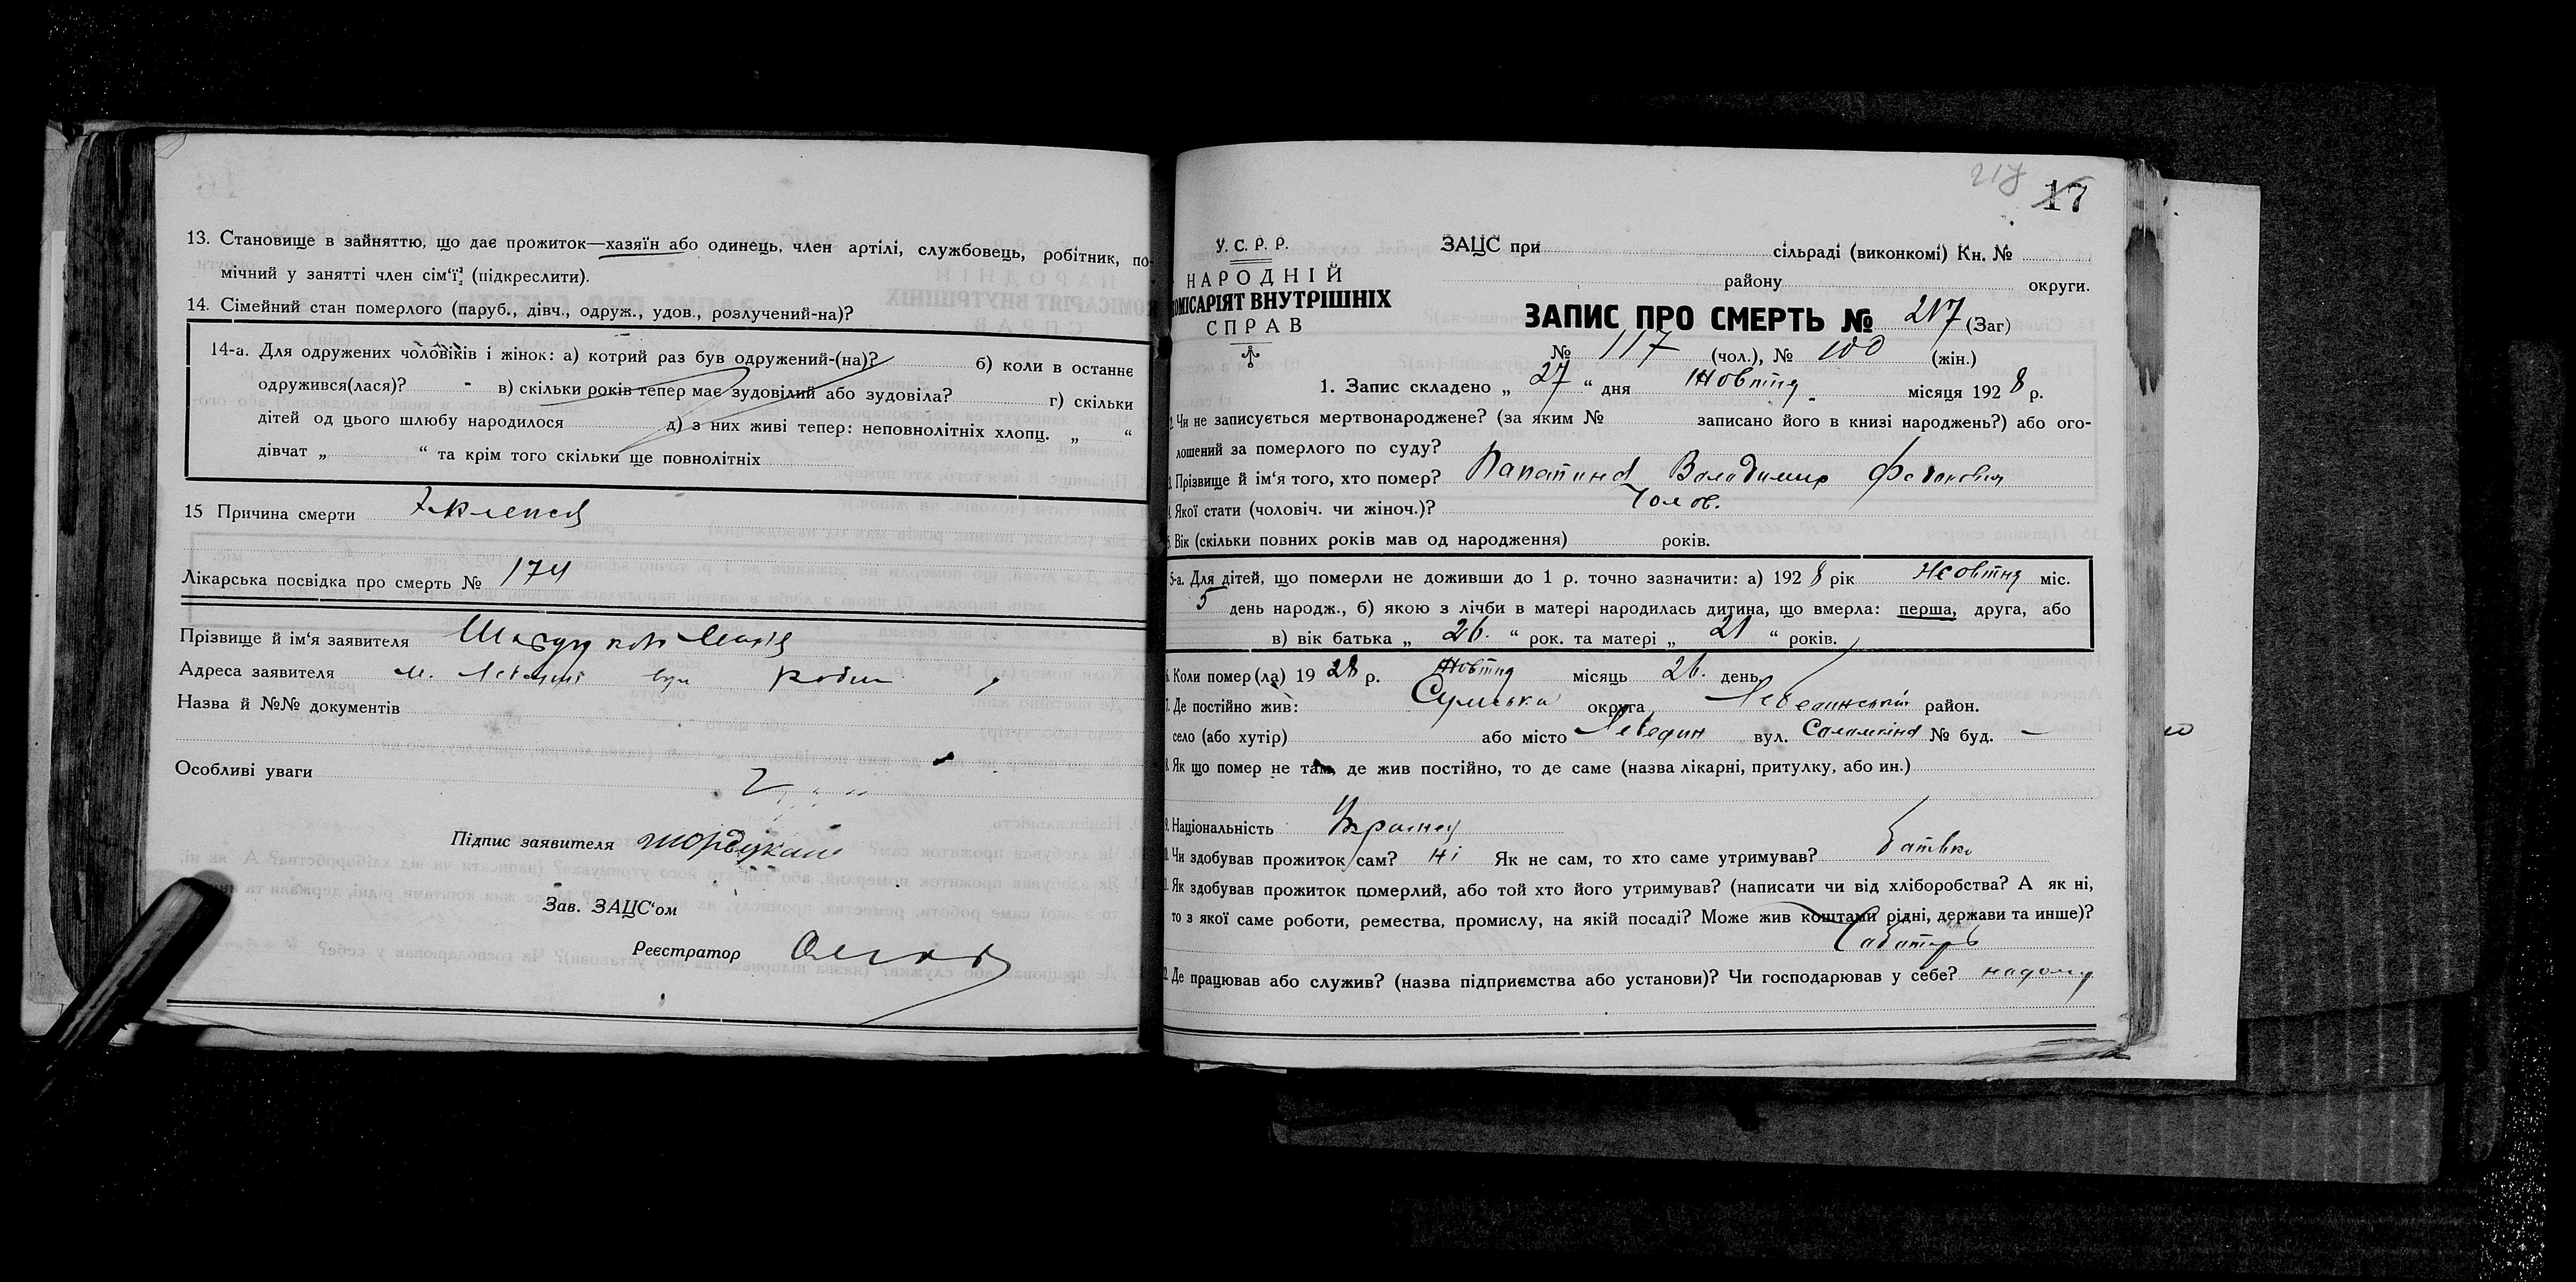 13. Становище в зайняттю, що дає прожиток—хазяїн або одинець, член артілі, службовець, робітник, по-
мічний у занятті член сім'ї (підкреслити).
14. Сімейний стан померлого (паруб., дівч., одруж., удов., розлучений-на)?
14-а. Для одружених чоловіків і жінок: а) котрий раз був одружений-(на)? б) коли в останнє
одружився(лася)? - в) скільки років тепер має зудовілий або зудовіла? г) скільки
дітей од цього шлюбу народилося д) з них живі тепер: неповнолітніх хлопц. „ “
дівчат „ “ та крім того скільки ще повнолітніх
15 Причина смерти
Лікарська посвідка про смерть № 174
Прізвище й ім'я заявителя
Адреса заявителя м. вул
Назва й №№ документів
Особливі уваги
Підпис заявителя
Зав. ЗАЦС'ом
Реєстратор
217
17
У. С. Р. Р.
НАРОДНІЙ
КОМІСАРІЯТ ВНУТРІШНІХ
СПРАВ
ЗАЦС при сільраді (виконкомі) Кн. №
району округи.
ЗАПИС ПРО СМЕРТЬ № 217 (Заг)
№ 117 (чол.), № 100 (жін.)
1. Запис складено „ 27 “ дня Жовтня місяця 1928 р.
2. Чи не записується мертвонароджене? (за яким № записано його в книзі народжень?) або ого-
лошений за померлого по суду?
3. Прізвище й ім'я того, хто помер? Володимир
4. Якої стати (чоловіч. чи жіноч.)? Чолов.
5. Вік (скільки повних років мав од народження) років.
5-а. Для дітей, що померли не доживши до 1 р. точно зазначити: а) 1928 рік Жовтня міс.
5 день народж., б) якою з лічби в матері народилась дитина, що вмерла: перша, друга, або
в) вік батька „ 26. “ рок. та матері „ 21 “ років.
6. Коли помер(ла) 1928 р. Жовтня місяць 26. день
7. Де постійно жив: Сумська округа Лебединський район.
село (або хутір) або місто Лебедин вул. № буд. –
8. Як що помер не там, де жив постійно, то де саме (назва лікарні, притулку, або ин.)
9. Національність
10. Чи здобував прожиток сам? ні Як не сам, то хто саме утримував? батько
11. Як здобував прожиток померлий, або той хто його утримував? (написати чи від хліборобства? А як ні,
то з якої саме роботи, ремества, промислу, на якій посаді? Може жив коштами рідні, держави та инше)?
12. Де працював або служив? (назва підприємства або установи)? Чи господарював у себе? надому